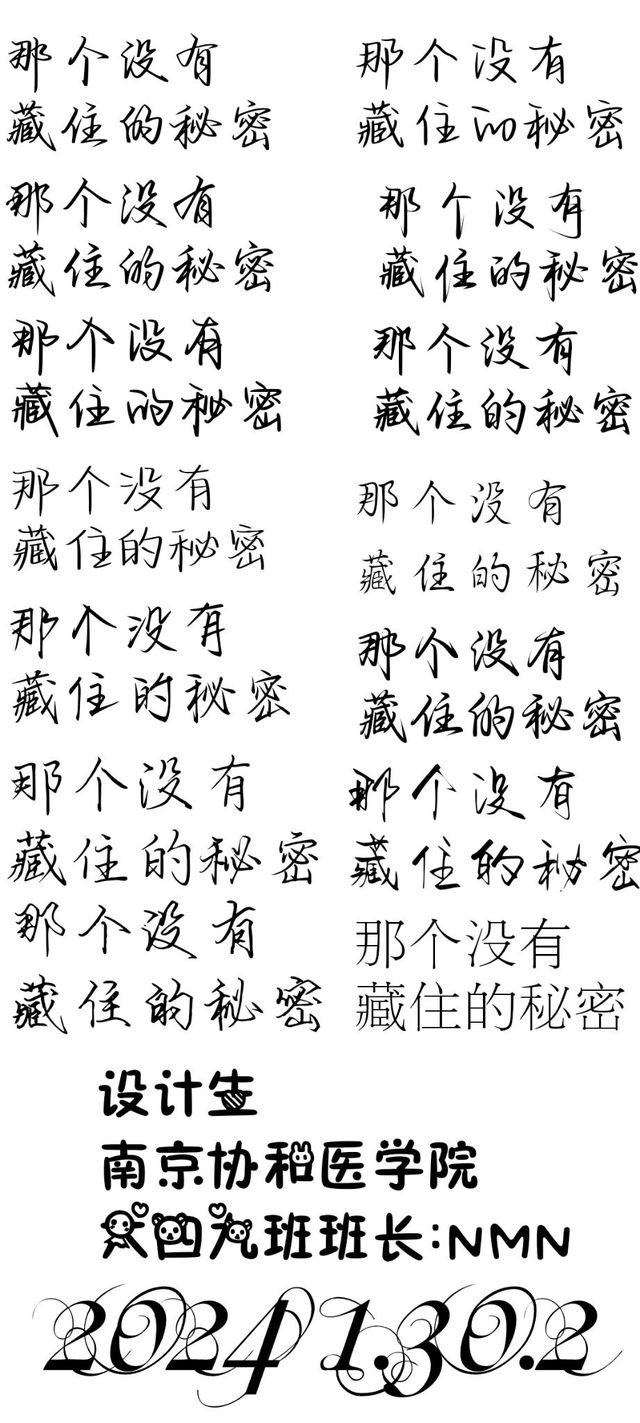 那个没有
藏住的秘密
那个没有
藏住的秘密
那个没有
藏住的秘密
那个没有
藏住的秘密
那个没有
藏住的秘密
那个没有
藏住的秘密
那个没有
藏住的秘密
那个没有
藏住的秘密
那个没有
藏住的秘密
那个没有
藏住的秘密
那个没有
藏住的秘密
那个没有
藏住的秘密
那个没有
藏住的秘密
那个没有
藏住的秘密
设计生
南京协和医学院
六四九班班长:NMN
2024 1.30.2